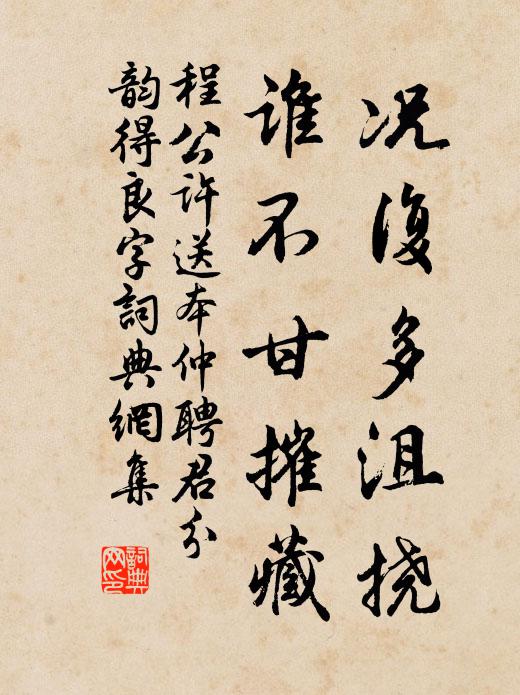 况復多沮挠
谁不甘摧藏
程公许送李仲聘君分
韵得良字詞典網集
詞典网印